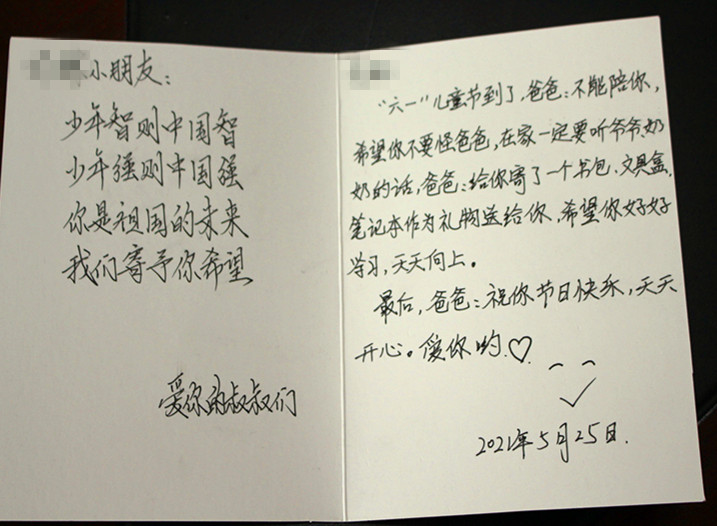 小朋友：
少年智则中国智
少年强则中国强
你是祖国的未来
我们寄予你希望
爱你的叔叔们
“六一”儿童节到了，爸爸：不能陪你，
希望你不要怪爸爸，在家一定要听爷爷奶
奶的话，爸爸：给你寄了一个书包、文具盒，
笔记本作为礼物送给你，希望你好好
学习，天天向上。
最后，爸爸：祝你节日快乐，天天
开心。爱你哟♡.
2021年5月25日.